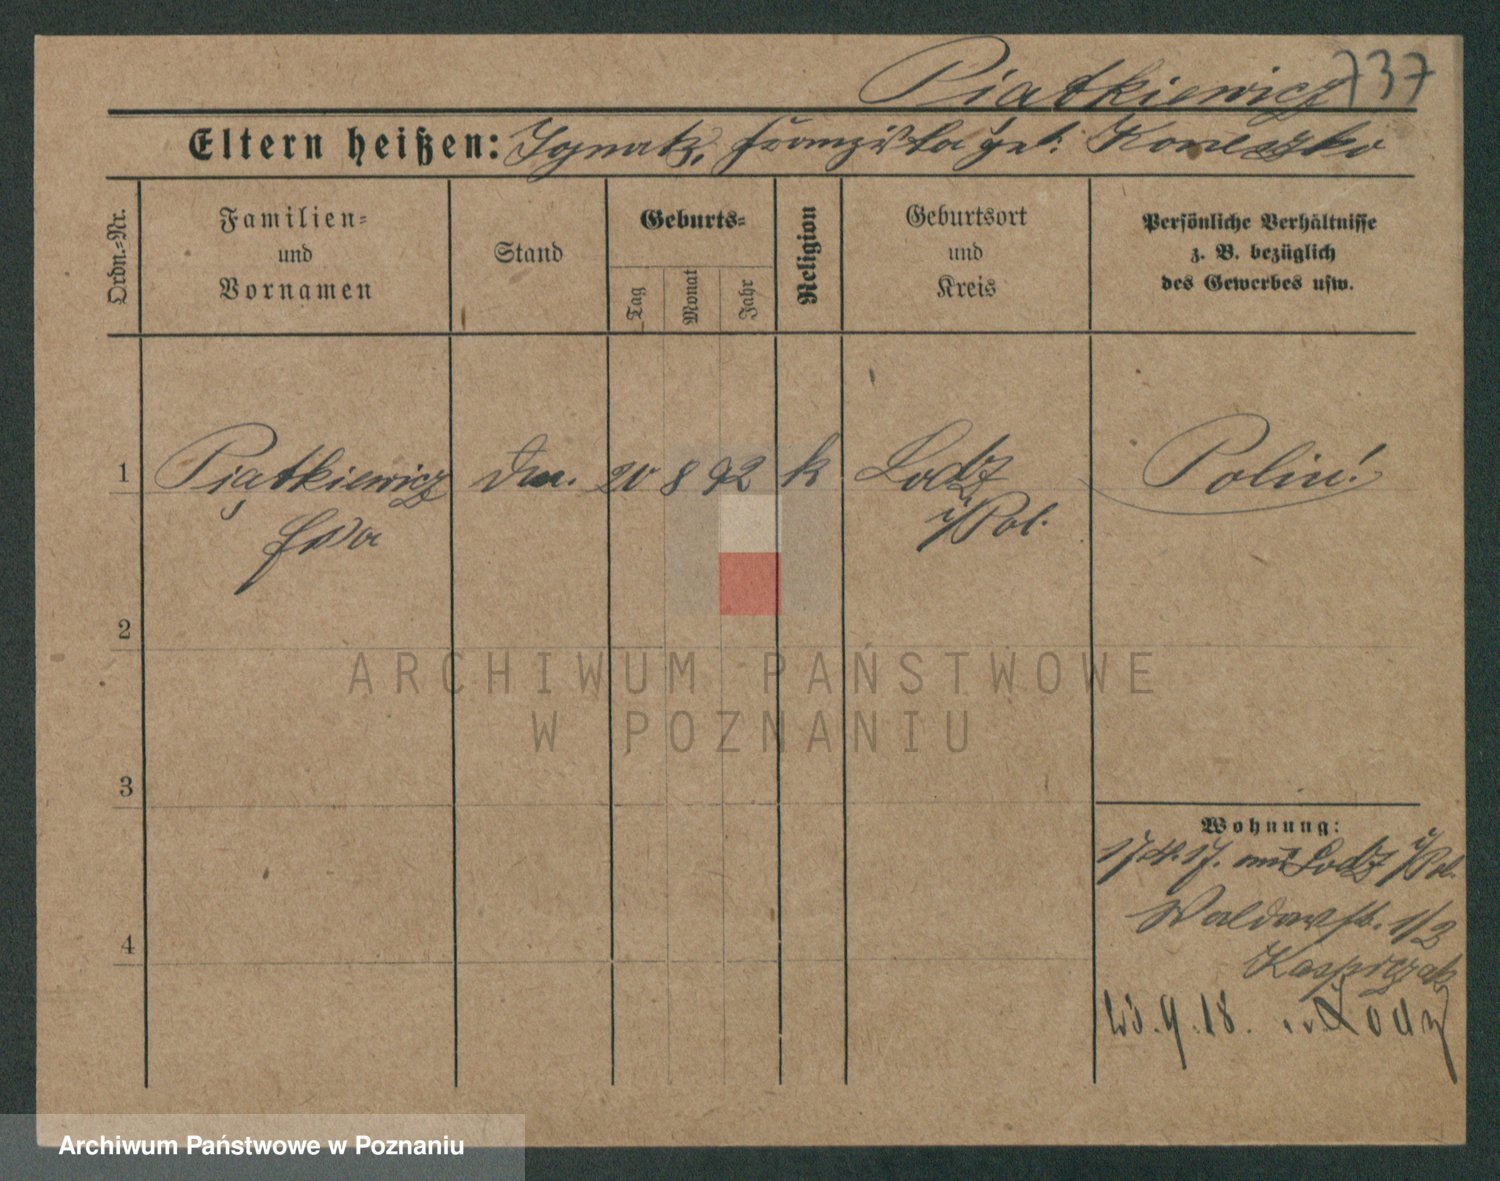 Piątkiewicz 737
Eltern heißen: Ignatz, Franziska geb.
Ordn.=Nr.
Familien=
und
Vornamen
Stand
Geburts=
Tag
Monat
Jahr
Religion
Geburtsort
und
Kreis
Persönliche Verhältnisse
z. B. bezüglich
des Gewerbes usw.
1 Piątkiewicz 20 8 92 k Lodz Polin!
Eva i/Pol.
2
3
4
Wohnung:
Lodz i/Pol.
Waldowstr. 1/2
Kasprzak
9.18. Lodz
ARCHIWUM PAŃSTWOWE
W POZNANIU
Archiwum Państwowe w Poznaniu